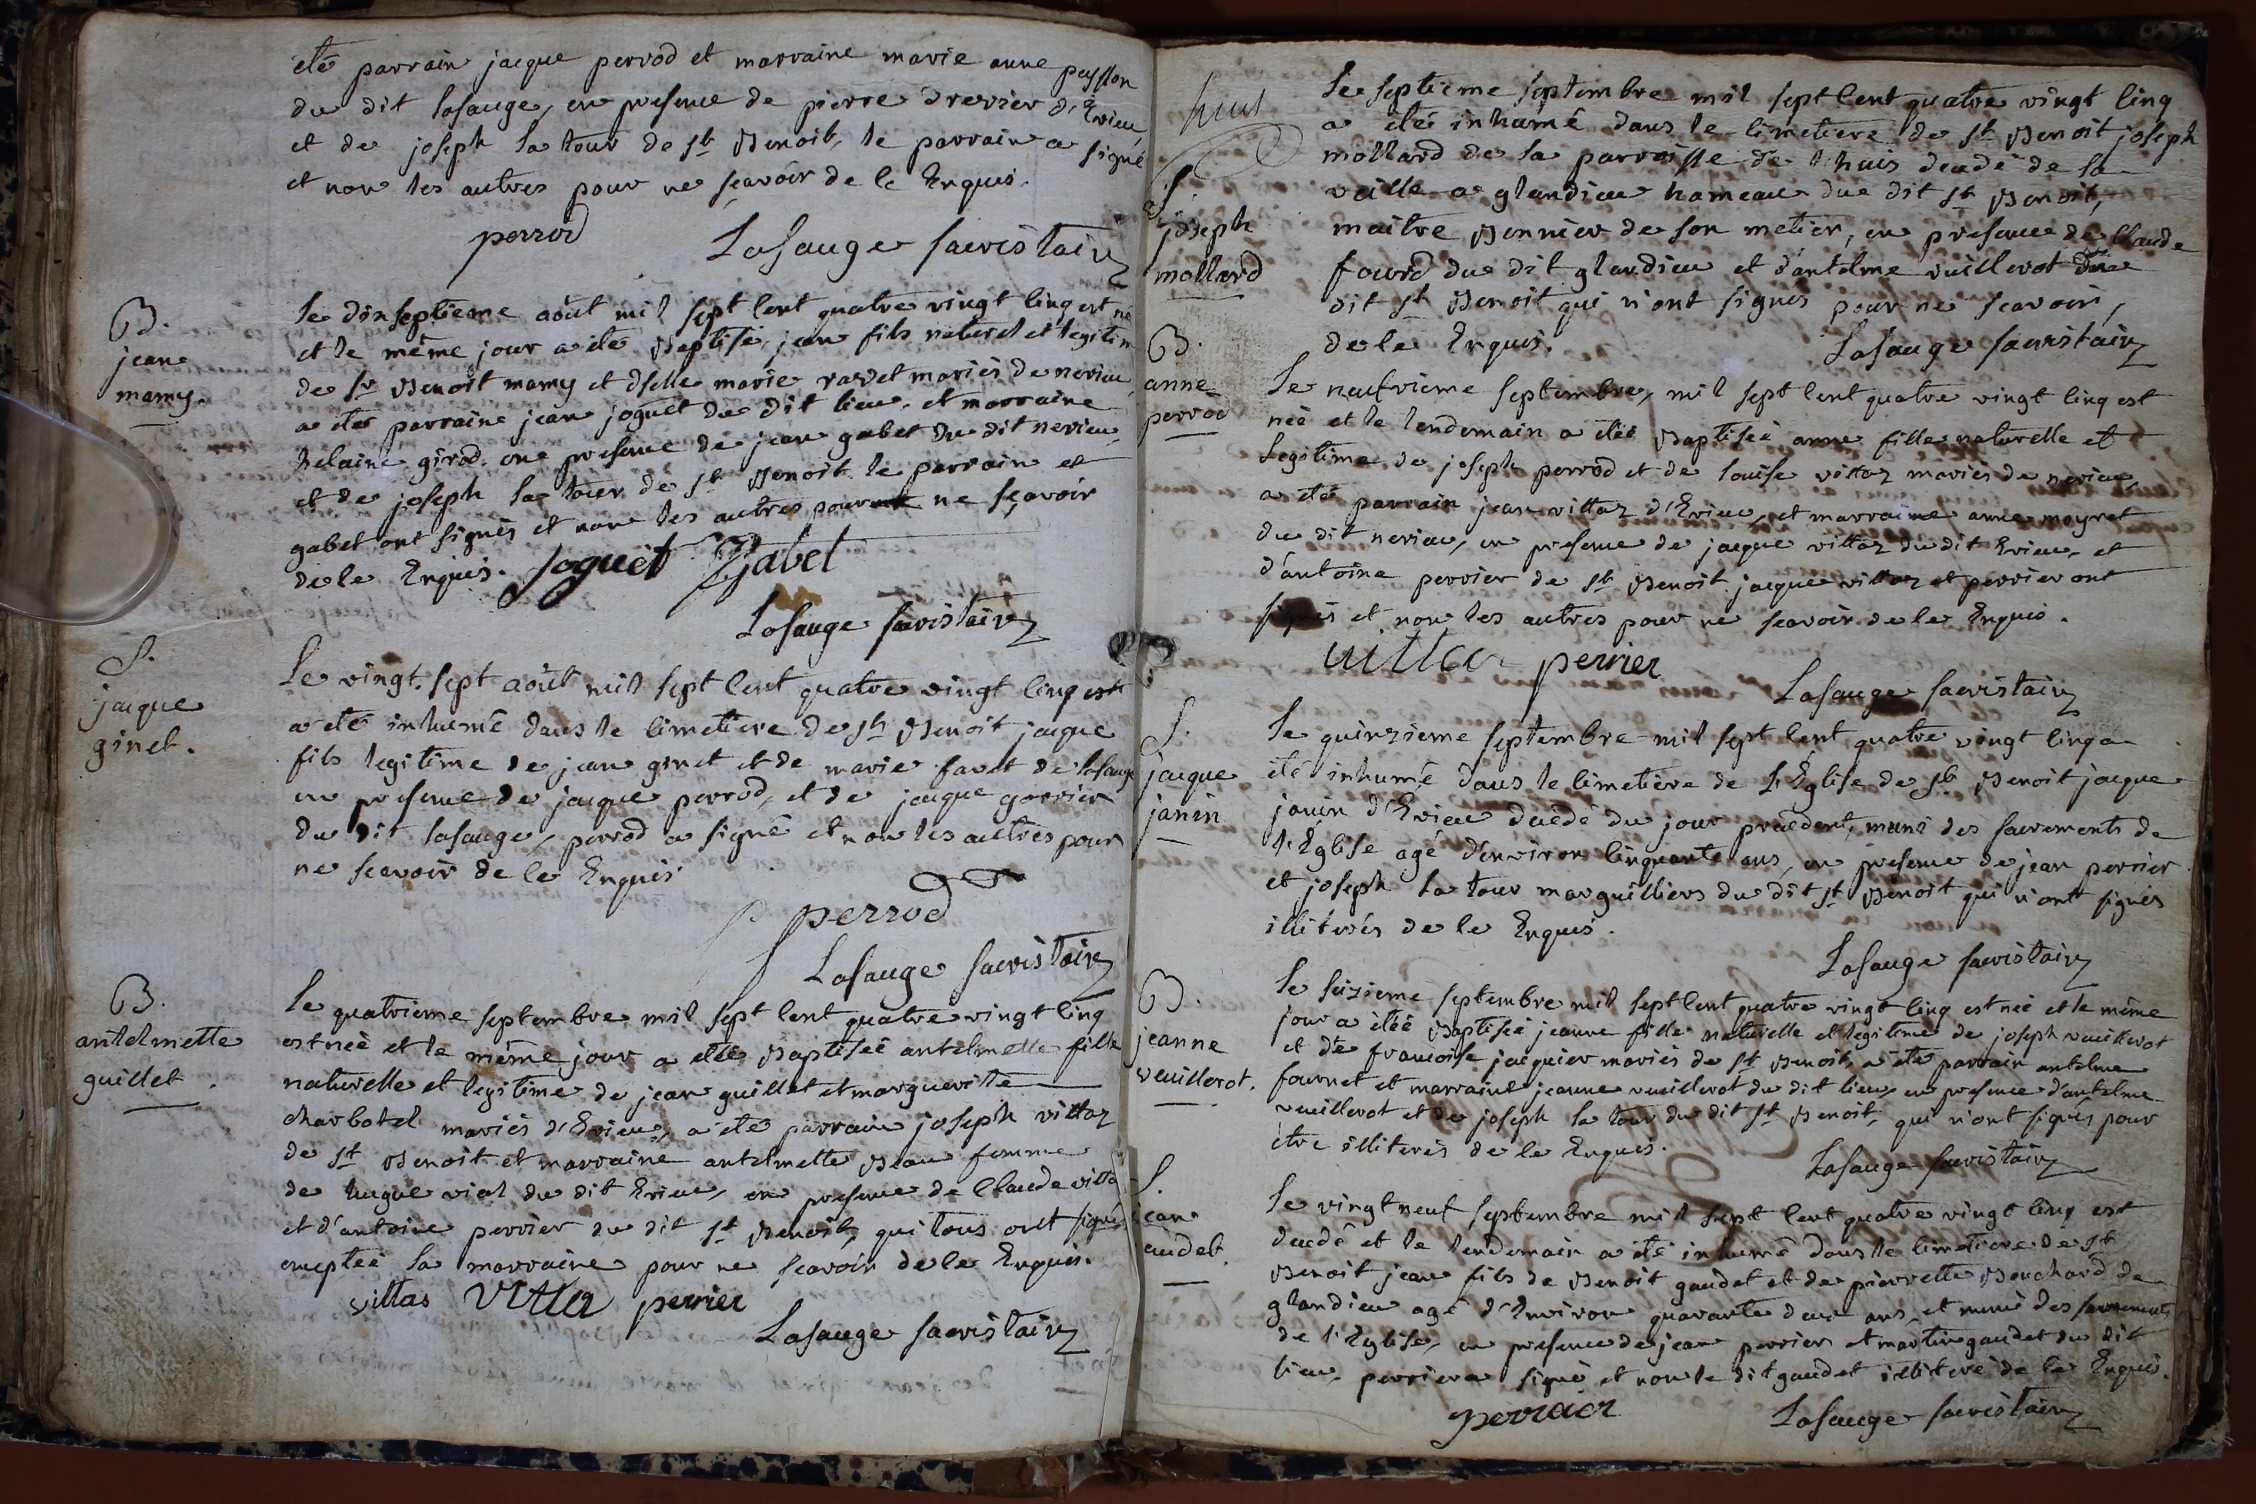 eté parrain jaque perrod et marraine marie anne peysson
du dit lasauge, en presence de pierre drevier d'Evieu
et de joseph la tour de st Benoit, le parrain a signé
et non les autres pour ne scavoir de ce Enquis.
perrod Lasauge sacristain
B.
jean
mamy.
Le dixseptieme août mil sept cent quatre vingt cinq est né
et le même jour a eté Baptisé, jean fils naturel et legitime
de sr Benoit mamy et dselle marie ravet mariés de nerieu
a eté parrain jean joguet du dit lieu, et marraine
helaine girod, en presence de jean gabet du dit nerieu,
et de joseph la tour de st Benoit le parrain et
gabet ont signés et non les autres pour ne sçavoir
de ce Enquis. Joguet Gabet
Lasauge sacristain
S.
jaque
ginet.
Le vingt sept août mil sept cent quatre vingt cinq est
a eté inhumé dans le cimetiere de st Benoit jaque
fils legitime de jean ginet et de marie favet de lasauge
en presence de jaque perrod, et de jaque gorrier
du dit lasauge, perrod a signé et non les autres pour
ne scavoir de ce Enquis
perrod
Lasauge sacristain
B.
antelmette
guillet.
Le quatrieme septembre mil sept cent quatre vingt cinq
est neé et le même jour a eteé Baptiseé antelmette fille
naturelle et legitime de jean guillet et marguerite
charbotel mariés d'Evieu, a eté parrain joseph vittoz
de st Benoit et marraine antelmette Beau femme
de hugue vial du dit Evieu, en presence de Claude vitto
et d'antoine perrier du dit st Benoit, qui tous ont signés
excepteé la marraine pour ne sçavoir de ce Enquis.
vittas Vittoz perrier
Lasauge sacristain
huis
S.
joseph
mollard
Le septieme septembre mil sept cent quatre vingt cinq
a eté inhumé dans le cimetiere de st Benoit joseph
mollard de la parroisse de l'huis decedé de la
veille a glandieu hameau du dit st Benoit,
maitre Bennier de son metier, en presence de Claude
fourd du dit glandieu et d'antelme vuillerot du
dit st Benoit qui n'ont signés pour ne scavoir,
de ce Enquis. Lasauge sacristain
B.
anne
perrod
Le neufvieme septembre, mil sept cent quatre vingt cinq est
neé et le lendemain a eteé Baptiseé anne fille naturelle et
Legitime de joseph perrod et de louise vittoz mariés de nerieu,
a eté parrain jean vittoz d'Evieu, et marraine anne moyret
du dit nerieu, en presence de jaque vittoz du dit Evieu, et
d'antoine perrier de st Benoit. jaque vittoz et perrier ont
signés et non les autres pour ne scavoir de ce Enquis.
Vittoz perrier
Lasauge sacristain
S.
jaque
janin
Le quinzieme septembre mil sept cent quatre vingt cinq a
été inhumé dans le cimetiere de l'Eglise de st Benoit jaque
janin d'Evieu decedé du jour precedent, muni des sacrements de
l'Eglise agé d'environ cinquante ans, en presence de jean perrier
et joseph la tour marguilliers du dit st Benoit qui n'ont signés
illiterés de ce Enquis.
Lasauge sacristain
B.
jeanne
veuillerot.
Le seizieme septembre mil sept cent quatre vingt cinq est neé et le même
jour a eteé Baptiseé jeanne fille naturelle et legitime de joseph veuillerot
et de francoise jacquier mariés de st Benoit, a eté parrain antelme
fournet et marraine jeanne veuillerot du dit lieu, en presence d'antelme
veuillerot et de joseph la tour du dit st Benoit, qui n'ont signés pour
être illiterés de ce Enquis.
Lasauge sacristain
S.
jean
gaudet.
Le vingt neuf septembre mil sept cent quatre vingt cinq est
decedé et le lendemain a eté inhumé dans le cimetiere de st
Benoit jean fils de Benoit gaudet et de pierrette Bouchard de
glandieu agé d'Environ quarante deux ans, et muni des sacrements
de l'Eglise, en presence de jean perrier et martin gaudet du dit
lieu, perrier a signé et non le dit gaudet illiteré de ce Enquis.
perrier Lasauge sacristain